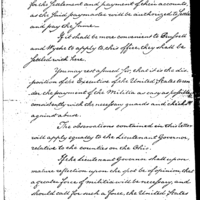 for the Settlement and payment of their accounts,
as the said paymaster will be authorized to settle
and pay the same.
If it shall be more convenient to Russell
and Wythe to apply to this office, they shall be
settled with here.
You may rest assured Sir, that it is the dis-
position of the Executive of the United States to or-
der the payment of the Militia as soon as possible
consistently with the necessary guards and checks
against abuse.
The observations contained in this letter
will apply equally to the Lieutenant Governor,
relative to the counties on the Ohio.
If the Lieutenant Governor shall upon
mature reflection upon the subject be of opinion that
a greater force of militia will be necessary, and
should call for such a force, the United States